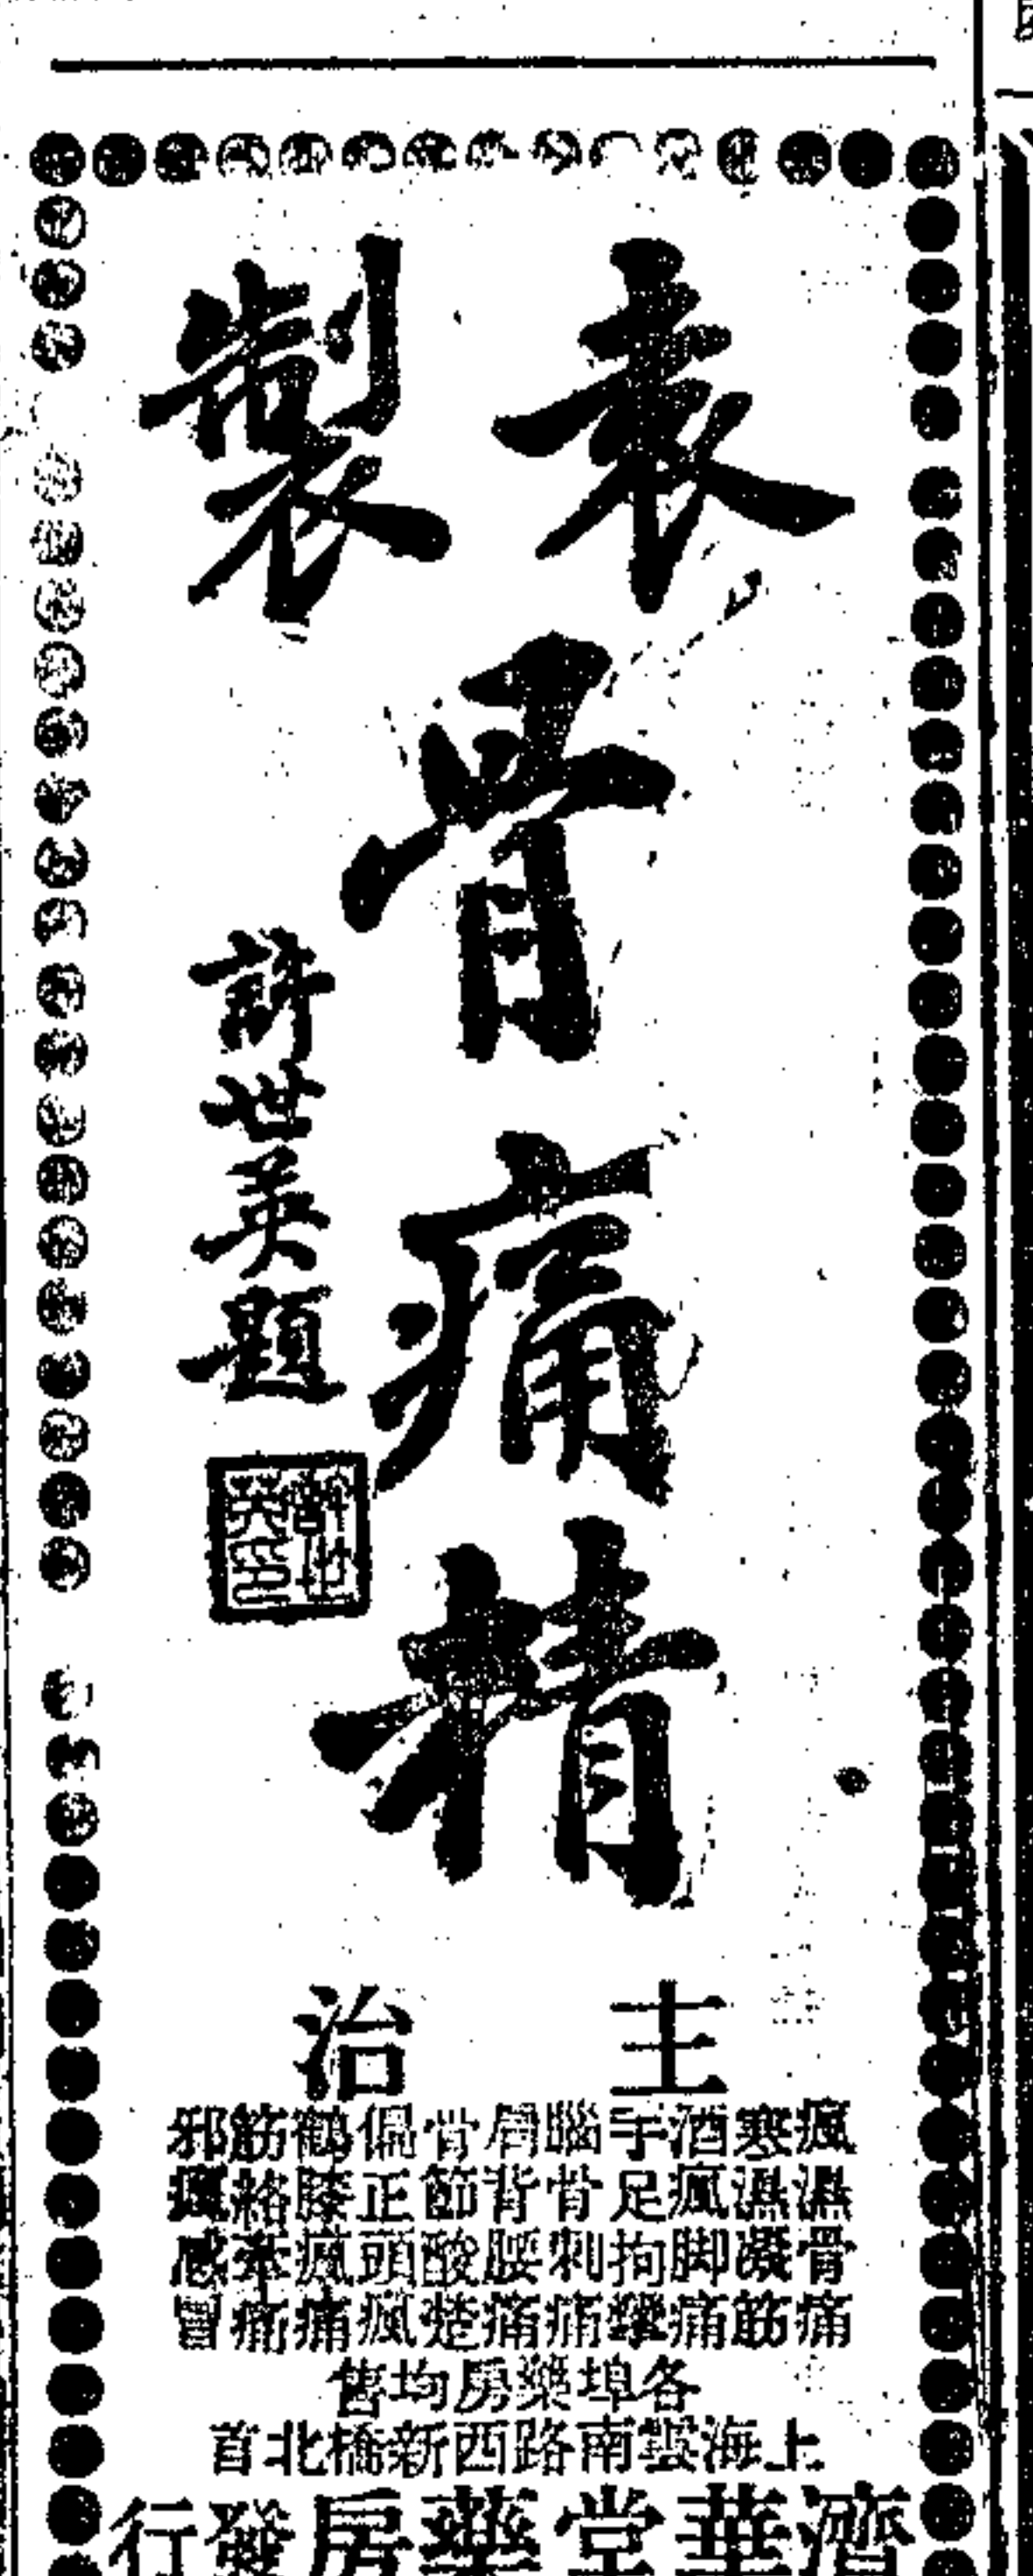 袁製
骨痛精
許世英題
許世英印
主治
瘋濕骨痛
寒濕凝筋
酒瘋脚痛
手足拘攣
腦骨刺痛
肩背腰痛
骨節酸楚
偏正頭瘋
鶴膝瘋痛
筋絡牽痛
邪瘋感冒
各埠藥房均售
上海雲南路西新橋北首
濟華堂藥房發行